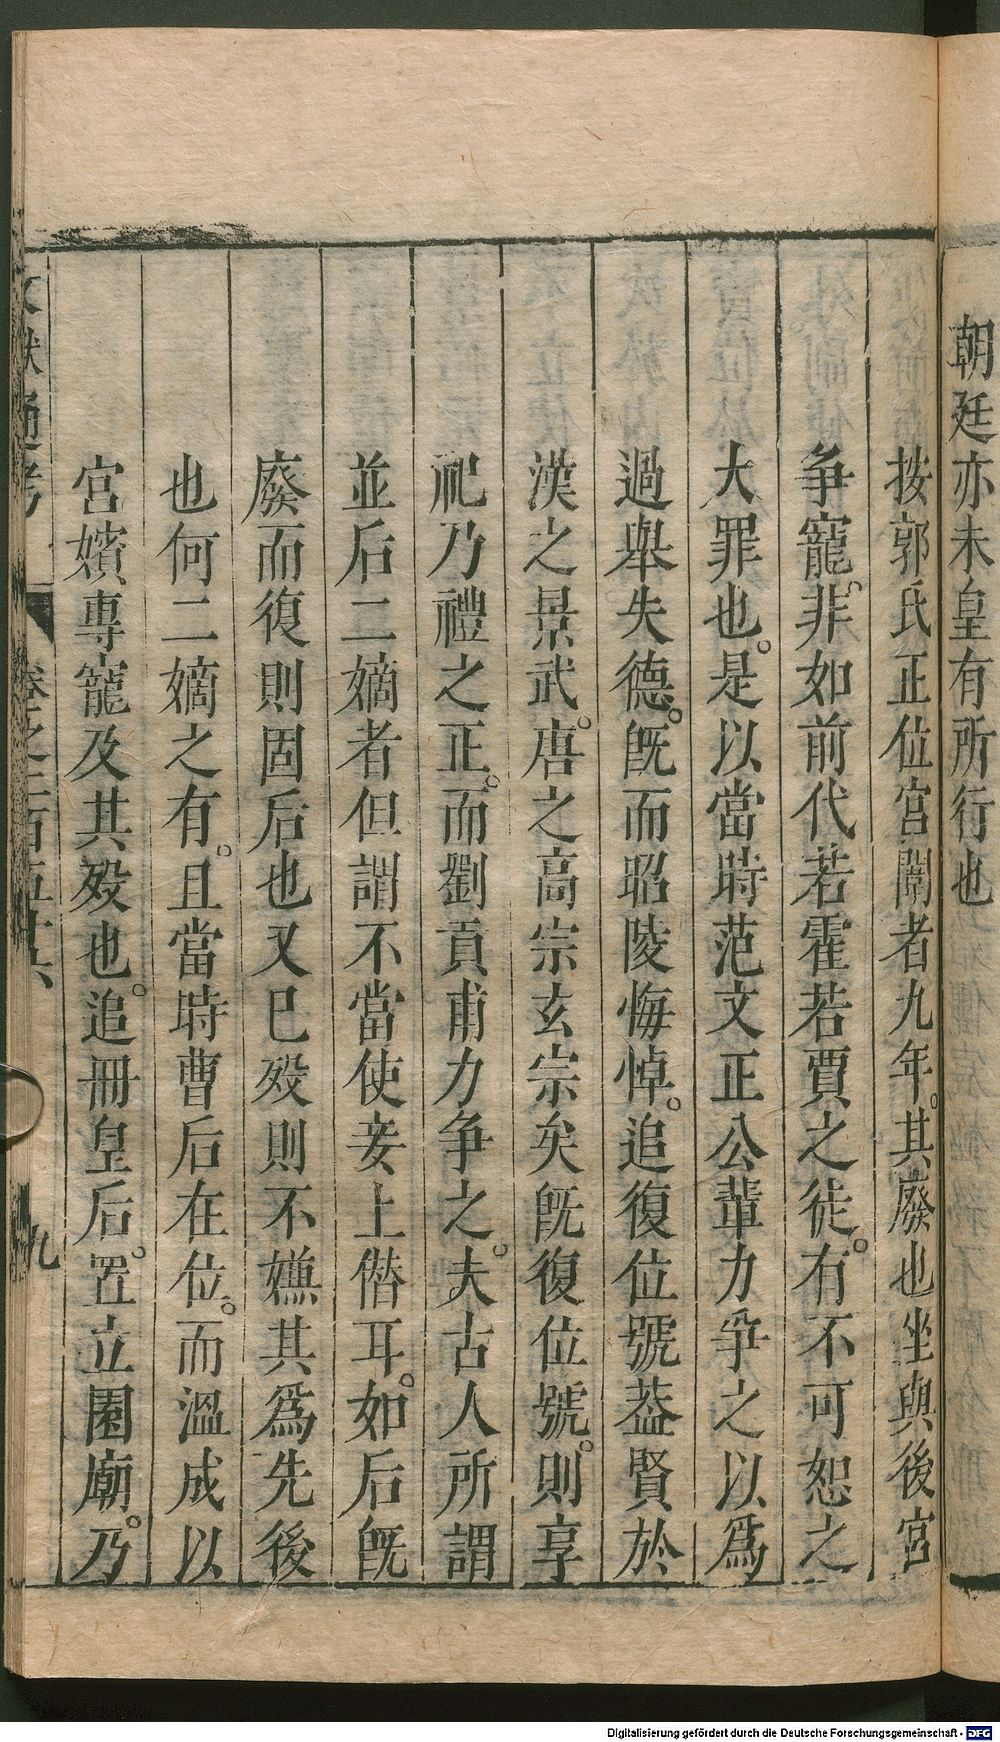 朝廷亦未皇有所行也
按郭氏正位宮闈者九年。其廢也坐與後宮
争寵。非如前代若霍若賈之徒。有不可恕之
大罪也。是以當時范文正公輩力爭之以爲
過舉失德。旣而昭陵悔悼。追復位號葢賢於
漢之景武。唐之高宗玄宗矣旣復位號。則享
祀乃禮之正。而劉貢甫力争之。夫古人所謂
並后二嫡者但謂不當使妾上僭耳。如后旣
廢而復則固后也又已歿則不嫌其爲先後
也何二嫡之有。且當時曹后在位。而溫成以
宮嬪專寵及其歿也。追冊皇后。置立園廟。乃
文獻通考 卷之二百五十六 九
Digitalisierung gefördert durch die Deutsche Forschungsgemeinschaft - DFG